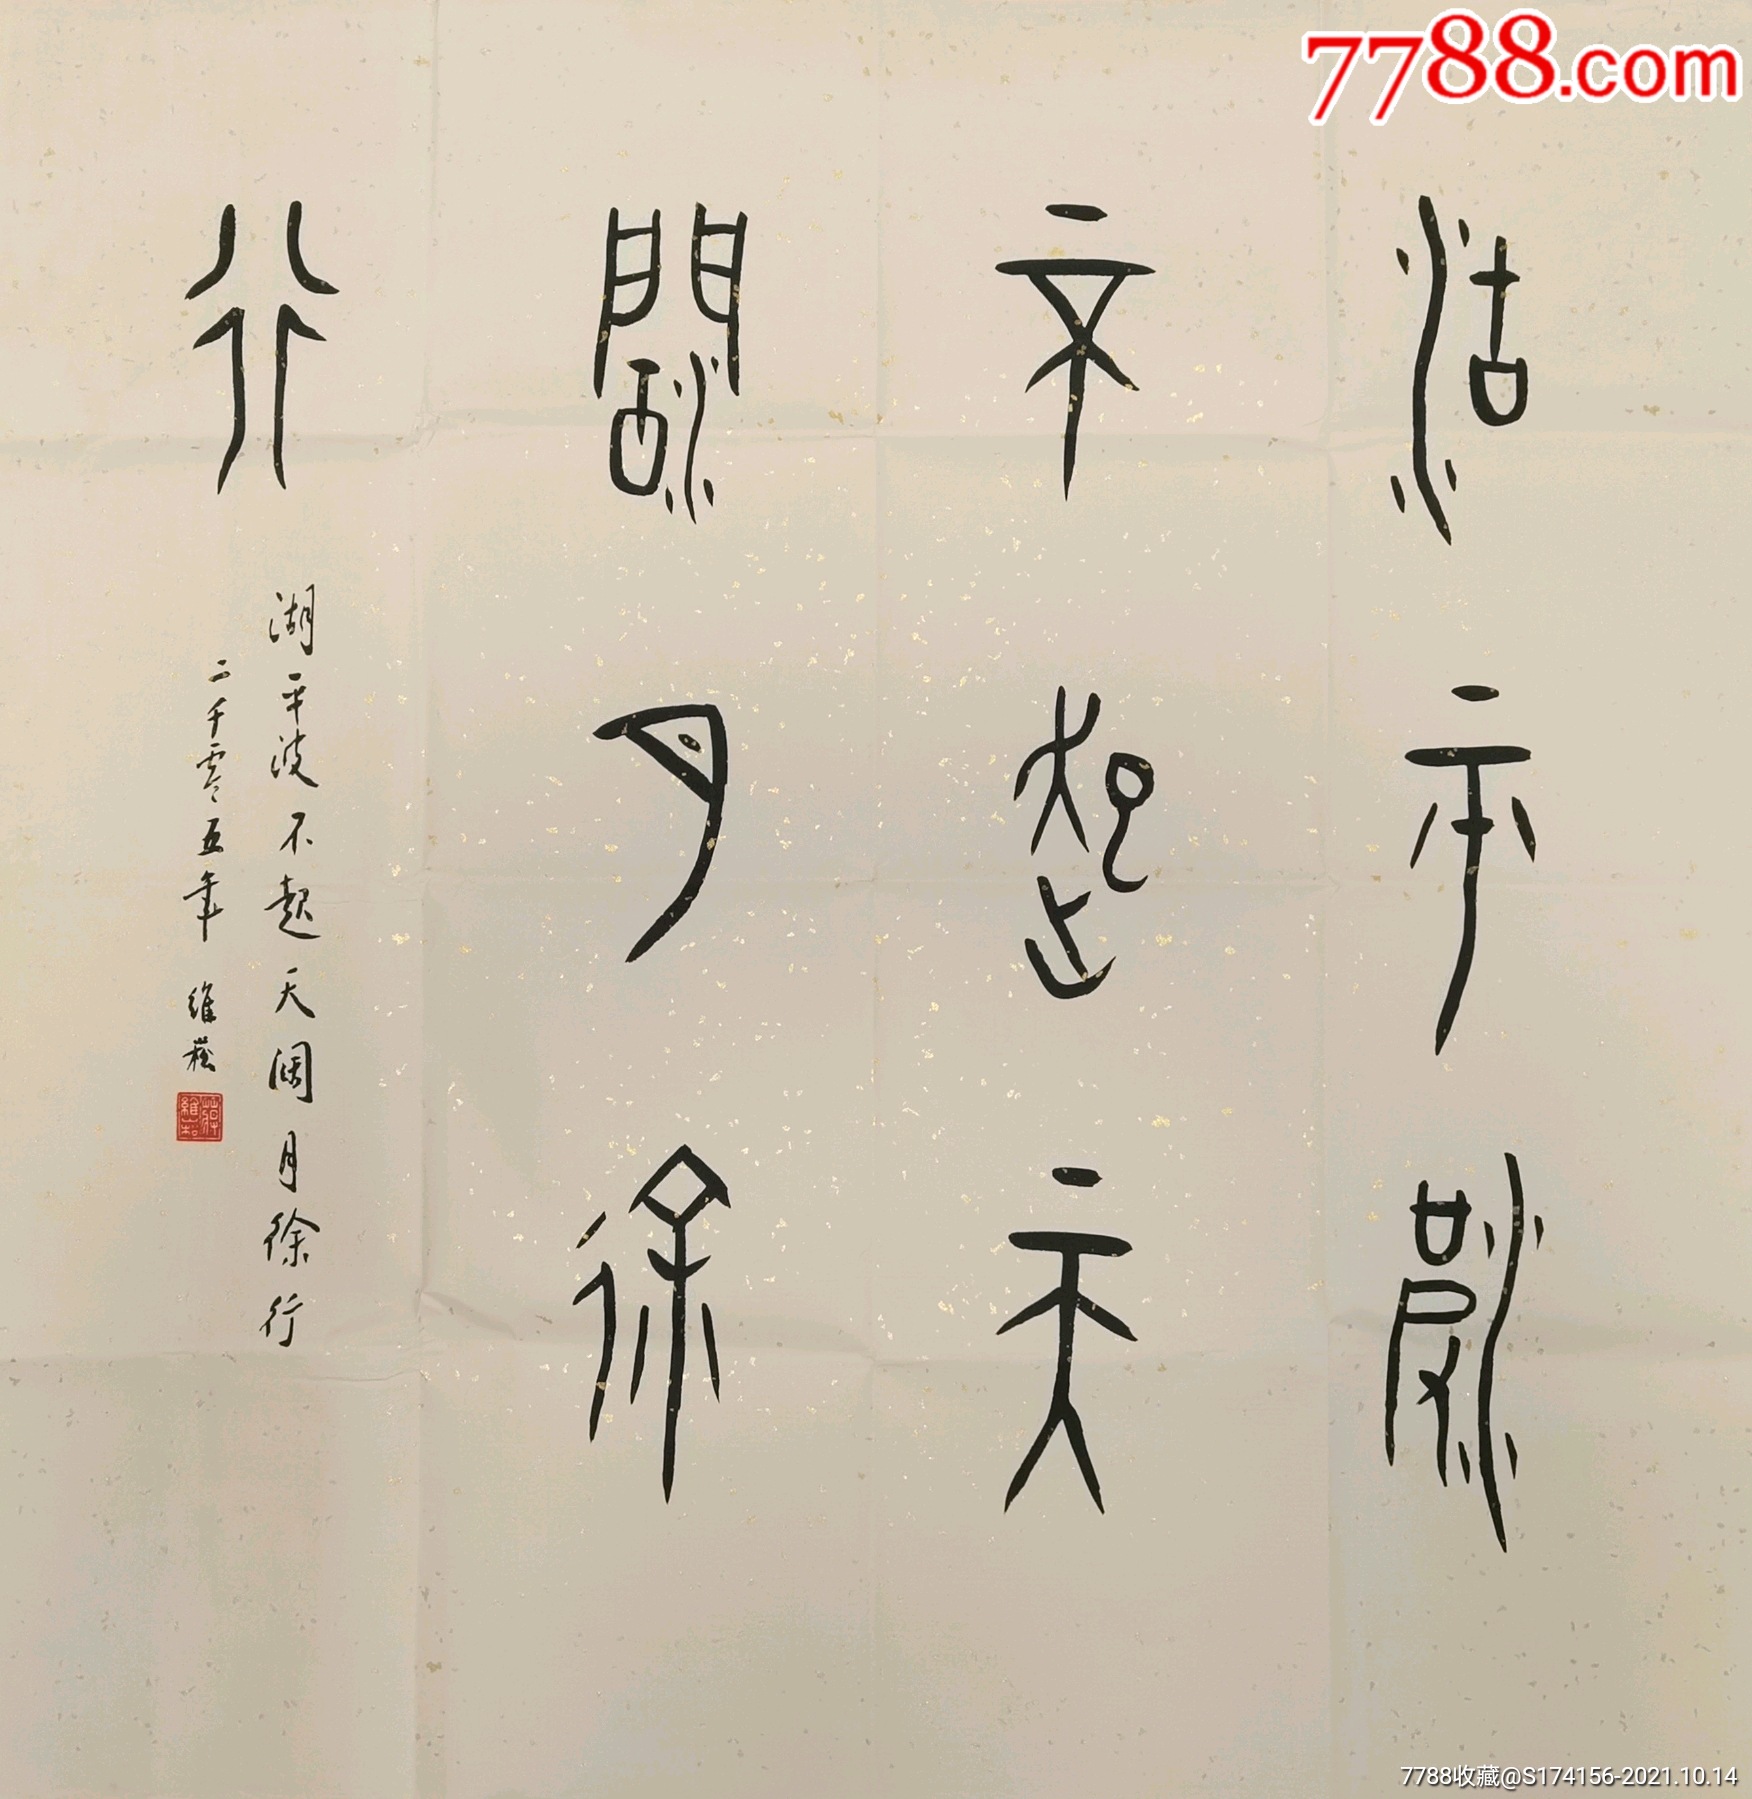 7788.com
湖平波
不起天
闊月徐
行
湖平波不起天阔月徐行
二千零五年 維菘
7788收藏@S174156-2021.10.14